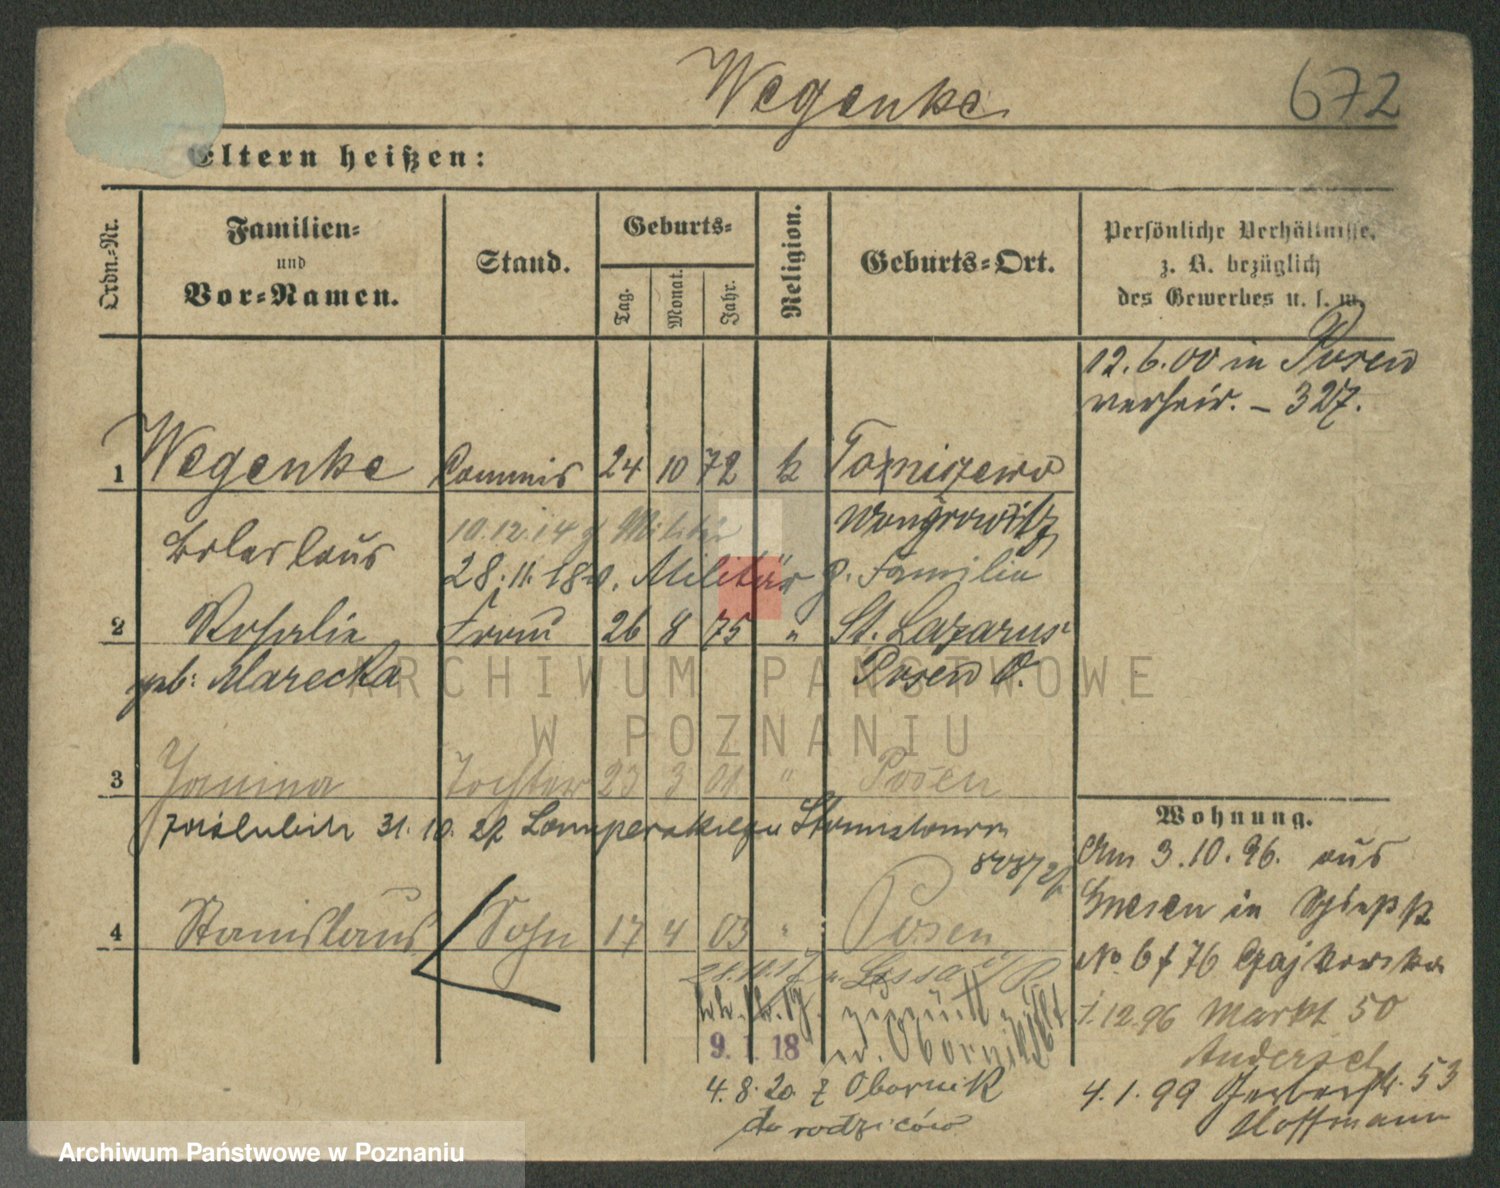 Wegenke 672
Eltern heißen:
Ordn.-Nr. Familien- und Vor-Namen. Stand. Geburts- Tag. Monat. Jahr. Religion. Geburts-Ort. Persönliche Verhältnisse, z. B. bezüglich des Gewerbes u. s. w.
12.6.00 in Posen
verheir. – 327.
1 Wegenke Commis 24 10 72 k Tomiszewo
Boleslaus Wongrowitz
10.12.14 z Militär
28.11.18 v. Militär z. Familie
2 Rosalie Frau 26 8 75 " St. Lazarus
geb: Marecka Posen O.
ARCHIWUM PAŃSTWOWE
W POZNANIU
3 Janina Tochter 23 3 01 " Posen
zaślubiła 31. 10. 22 Stanisława
4 Stanislaus Sohn 17 4 03 " Posen
Lissa i/P
zurück
9. 1. 18 Obornik
4.8.20 z Obornik
do rodziców
Wohnung.
Am 3.10.96. aus
Gnesen in
No 6 f 76
1.12.96 Markt 50
Andersch
4.1.99 Gerberstr. 53
Hoffmann
Archiwum Państwowe w Poznaniu